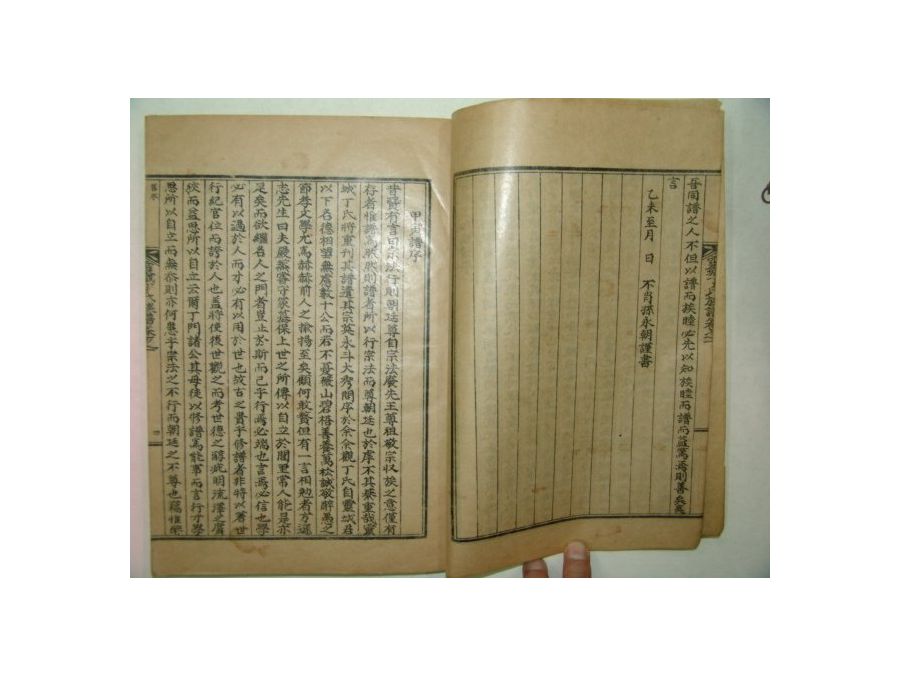 吾同譜之人不但以譜而族睦必先以知族睦而譜而益篤焉則善矣夫
言
乙未至月 日 不肖孫永朝謹書
甲 譜序
昔賢有言曰宗法行則朝廷尊自宗法廢先王尊祖敬宗收族之意僅有
存者惟譜焉然則譜者所以行宗法而尊朝廷也於虖不其綦重哉靈
城丁氏將重刊其譜遣其宗英永斗大秀問序於余余觀丁氏自靈城君
以下名德相望無慮數十公而若不憂軒山碧梧善養萬松誠敬醉愚之
節孝文學尤為赫赫前人之揄揚至矣顧何敢贅但有一言相勉者方遜
志先生曰夫嚴蒸嘗守冢墓保上世之所傳以自立於閭里常人能是亦
足矣而欲繼名人之門者豈止於斯而已乎行焉必端也言焉必信也學
必有以過於人而才必有以用於世也故古之貴乎修譜者非特以著世
行紀官位而誇於人也蓋將使後世觀之而考世德之醇疵明流澤之
而益思所以自立云爾丁門諸公其毋徒以修譜為能事而言行才學
思所以自立而無忝則亦何患乎宗法之不行而朝廷之不尊也竊惟